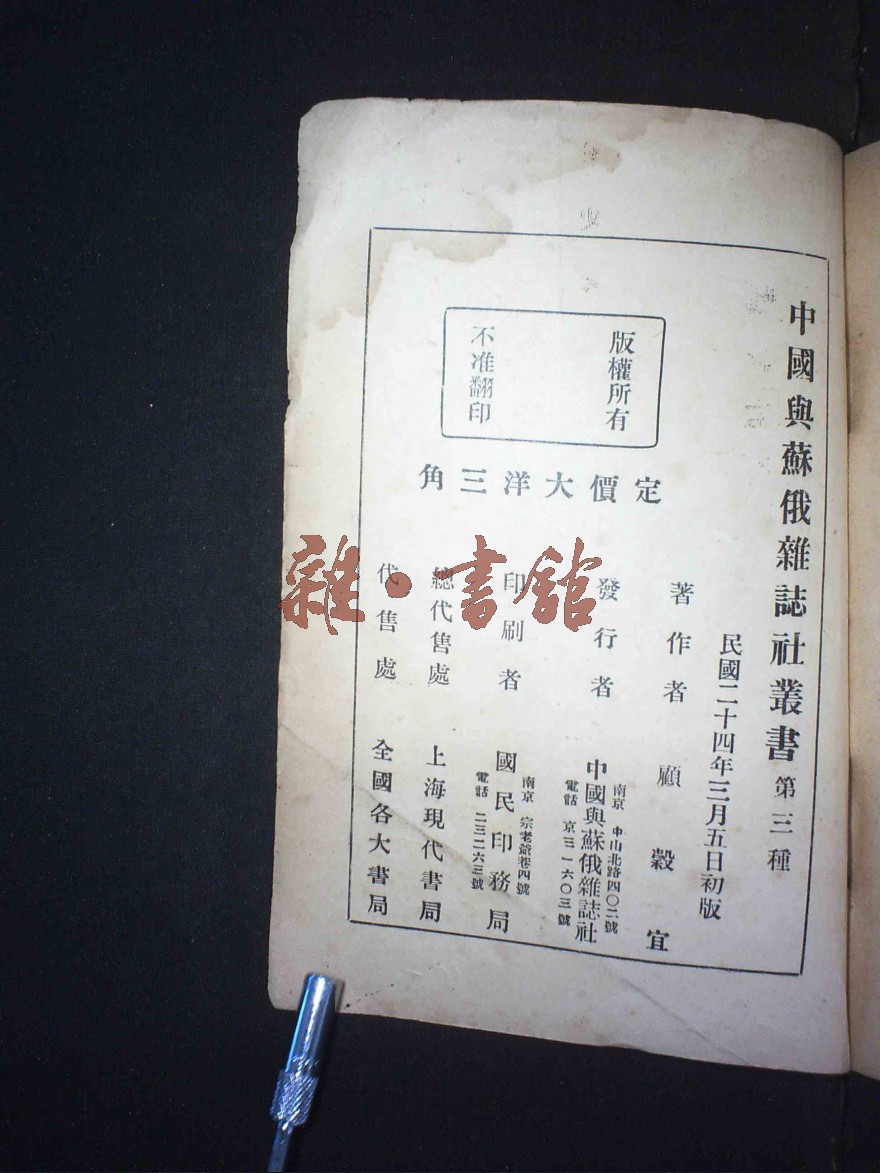 中國與蘇俄雜誌社叢書 第三種
民國二十四年三月五日初版
著作者 顧穀宜
發行者 中國與蘇俄雜誌社
南京 中山北路四〇二號
電話 京三一六〇三號
印刷者 國民印務局
南京 宗老爺巷四號
電話 二三二六三號
總代售處 上海現代書局
代售處 全國各大書局
定價大洋三角
版權所有
不准翻印
雜·書館